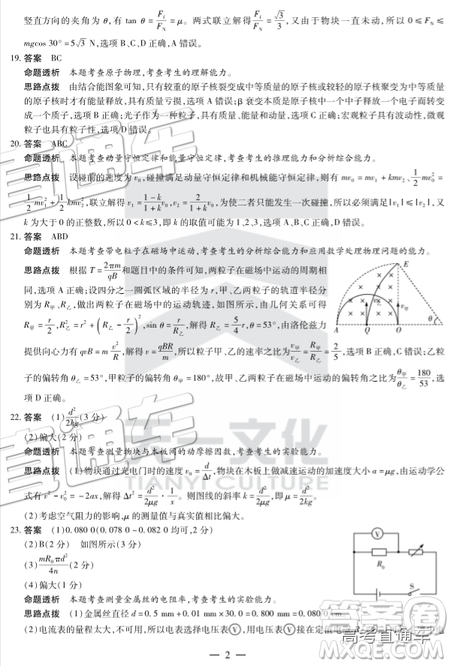 竖直方向的夹角为 θ,有 tan θ = F_f/F_N = μ。两式联立解得 F_f/F_N = √3/3,又由于物块一直未动,所以 0≤F_N≤
mgcos 30°=5√3 N,选项 B、C、D 正确,A 错误。
19. 答案 BC
命题透析 本题考查原子物理,考查考生的理解能力。
思路点拨 由结合能图象可知,只有较重的原子核裂变成中等质量的原子核或较轻的原子核聚变为中等质量
的原子核时才有能量释放,具有质量亏损,选项 A 错误;β 衰变本质是原子核中一个中子释放一个电子而转变
成一个质子,选项 B 正确;光子作为一种粒子,具有质量、能量和动量,选项 C 正确;宏观粒子具有波动性,微观
粒子也具有粒子性,选项 D 错误。
20. 答案 ABC
命题透析 本题考查动量守恒定律和能量守恒定律,考查考生的推理能力和分析综合能力。
思路点拨 设碰前的速度为 v₀,碰撞满足动量守恒定律和机械能守恒定律,则有 mv₀ = mv₁ + kmv₂、1/2 mv₀² =
1/2 mv₁² + 1/2 kmv₂²,联立解得 v₁ = (1-k)/(1+k) v₀,v₂ = 2/(1+k) v₀,为使二者只能发生一次碰撞,所以必须满足|v₁|≤|v₂|,又
k 为大于 0 的正整数,所以 0<k≤3,即 k 的取值可能为 1、2、3,选项 A、B、C 正确,D 错误。
21. 答案 ABD
命题透析 本题考查带电粒子在磁场中运动,考查考生的分析综合能力和应用数学处理物理问题的能力。
思路点拨 根据 T = 2πm/qB 和题目中的条件可知,两粒子在磁场中运动的周期相
同,选项 A 正确;设四分之一圆弧区域的半径为 r,甲、乙两粒子的轨道半径分
别为 R甲、R乙,做出两粒子在磁场中的运动轨迹,如图所示,由几何关系可得
R甲 = r/2,R乙² = r² + (R乙 - r/2)²,sin θ = r/R乙,解得 R乙 = 5/4 r,θ = 53°,由洛伦兹力
提供向心力有 qvB = m v²/R,解得 v = qBR/m,所以粒子甲、乙的速率之比为 v甲/v乙 = R甲/R乙 = 2/5,选项 B 正确,C 错误;乙粒
子的偏转角 θ乙 = 53°,甲粒子的偏转角 θ甲 = 180°,故甲、乙两粒子在磁场中运动的偏转角之比为 θ甲/θ乙 = 180/53,选
项 D 正确。
E
A Q O
22. 答案 (1) d²/2kg (3 分)
(2)偏大(2 分)
命题透析 本题考查测量物块与木板间的动摩擦因数,考查考生的实验能力。
思路点拨 (1)物块通过光电门时的速度 v₀ = d/Δt,物块在木板上做减速运动的加速度大小 a = μg,由运动学公
式有 v² - v₀² = -2ax,解得 Δt² = d²/2μg · 1/x。则图线的斜率 k = d²/2μg,即 μ = d²/2kg。
(2)考虑空气阻力的影响,μ 的测量值与真实值相比偏大。
23. 答案 (1)0.080 0(0.078 0~0.082 0 均可,2 分)
(2)B(2 分) 如图所示(3 分)
(3) mR₀πd²/4n (2 分)
(4)偏大(1 分)
命题透析 本题考查测量金属丝的电阻率,考查考生的实验能力。
思路点拨 (1)金属丝直径 d = 0.5 mm + 0.01 mm × 30.0 = 0.800 mm = 0.080 0
(2)电流表的量程太大,不可用,所以电压表选择电压表Ⓥ,用电压表Ⓥ接在定
V
R₀
S
天一文化
TIANYI CULTURE
答案圈
高考直通车
— 2 —